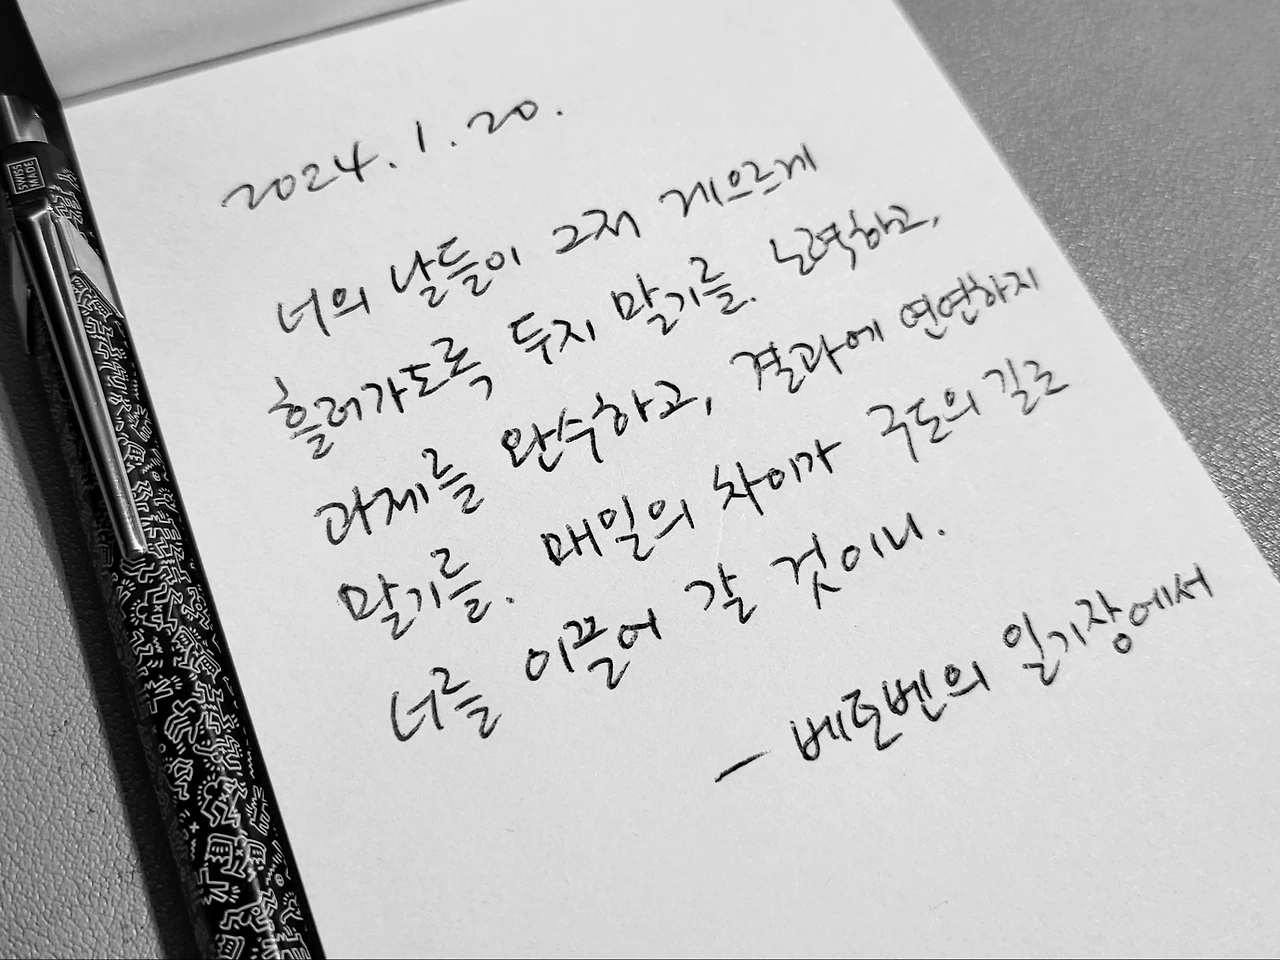 SWISS
MADE
2024. 1. 20.
너의 날들이 그저 게으르게
흘러가도록 두지 말기를. 노력하고,
과제를 완수하고, 결과에 연연하지
말기를. 매일의 차이가 구도의 길로
너를 이끌어 갈 것이니.
– 베토벤의 일기장에서